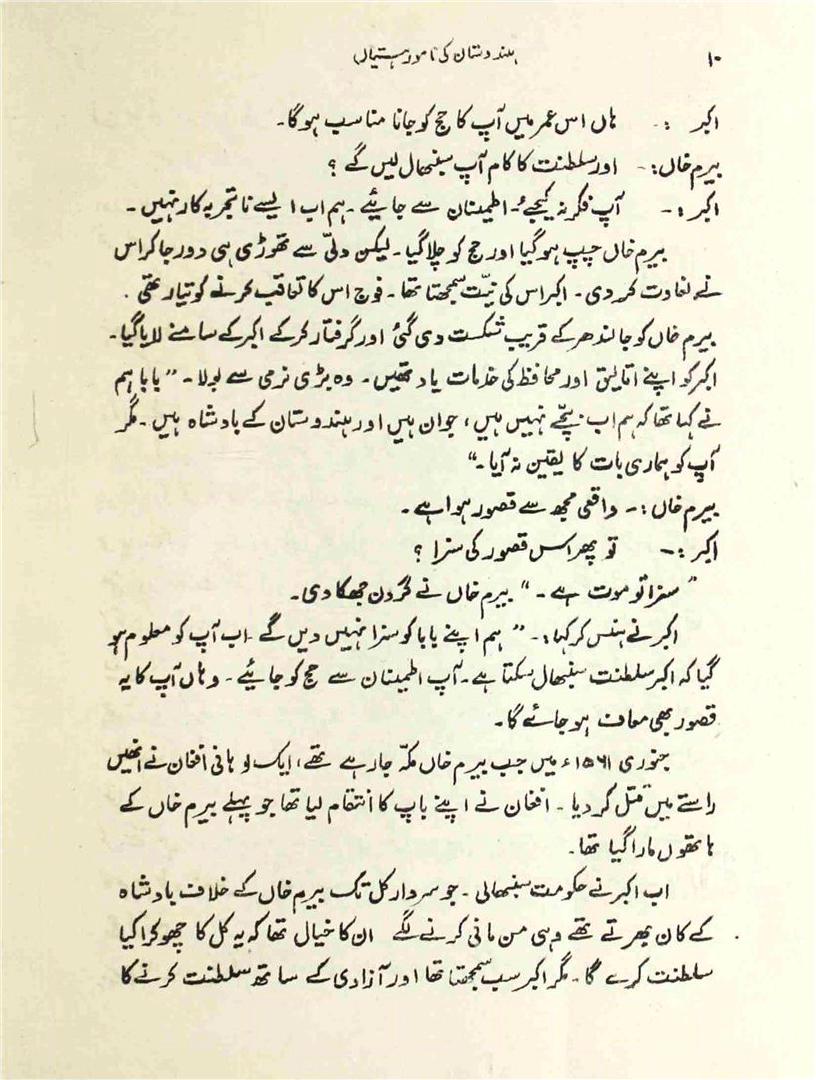 ۱۰
ہندوستان کی نامور ہستیاں
اکبر :- ہاں اس عمر میں آپ کا حج کو جانا مناسب ہوگا۔
بیرم خاں :- اور سلطنت کا کام آپ سنبھال لیں گے ؟
اکبر :- آپ فکر نہ کیجئے۔ اطمینان سے جائیے ۔ ہم اب ایسے ناتجربہ کار نہیں ۔
بیرم خاں چپ ہو گیا اور حج کو چلا گیا ۔ لیکن دلّی سے تھوڑی ہی دور جا کر اس
نے بغاوت کر دی ۔ اکبر اس کی نیّت سمجھتا تھا ۔ فوج اس کا تعاقب کرنے کو تیار تھی ۔
بیرم خاں کو جالندھر کے قریب شکست دی گئی اور گرفتار کر کے اکبر کے سامنے لایا گیا ۔
اکبر کو اپنے اتالیق اور محافظ کی خدمات یاد تھیں ۔ وہ بڑی نرمی سے بولا ۔ " بابا ہم
نے کہا تھا کہ ہم اب بچّے نہیں ہیں ، جوان ہیں اور ہندوستان کے بادشاہ ہیں ۔ مگر
آپ کو ہماری بات کا یقین نہ آیا ۔"
بیرم خاں :- واقعی مجھ سے قصور ہوا ہے ۔
اکبر :- تو پھر اس قصور کی سزا ؟
" سزا تو موت ہے ۔ " بیرم خاں نے گردن جھکا دی ۔
اکبر نے ہنس کر کہا :- " ہم اپنے بابا کو سزا نہیں دیں گے ۔ اب آپ کو معلوم ہو
گیا کہ اکبر سلطنت سنبھال سکتا ہے ۔ آپ اطمینان سے حج کو جائیے ۔ وہاں آپ کا یہ
قصور بھی معاف ہو جائے گا ۔
جنوری ۱۵۶۱ء میں جب بیرم خاں مکّہ جا رہے تھے ، ایک لوہانی افغان نے انھیں
راستے میں قتل کر دیا ۔ افغان نے اپنے باپ کا انتقام لیا تھا جو پہلے بیرم خاں کے
ہاتھوں مارا گیا تھا ۔
اب اکبر نے حکومت سنبھالی ۔ جو سردار کل تک بیرم خاں کے خلاف بادشاہ
کے کان بھرتے تھے وہی من مانی کرنے لگے ان کا خیال تھا کہ یہ کل کا چھوکرا کیا
سلطنت کرے گا ۔ مگر اکبر سب سمجھتا تھا اور آزادی کے ساتھ سلطنت کرنے کا